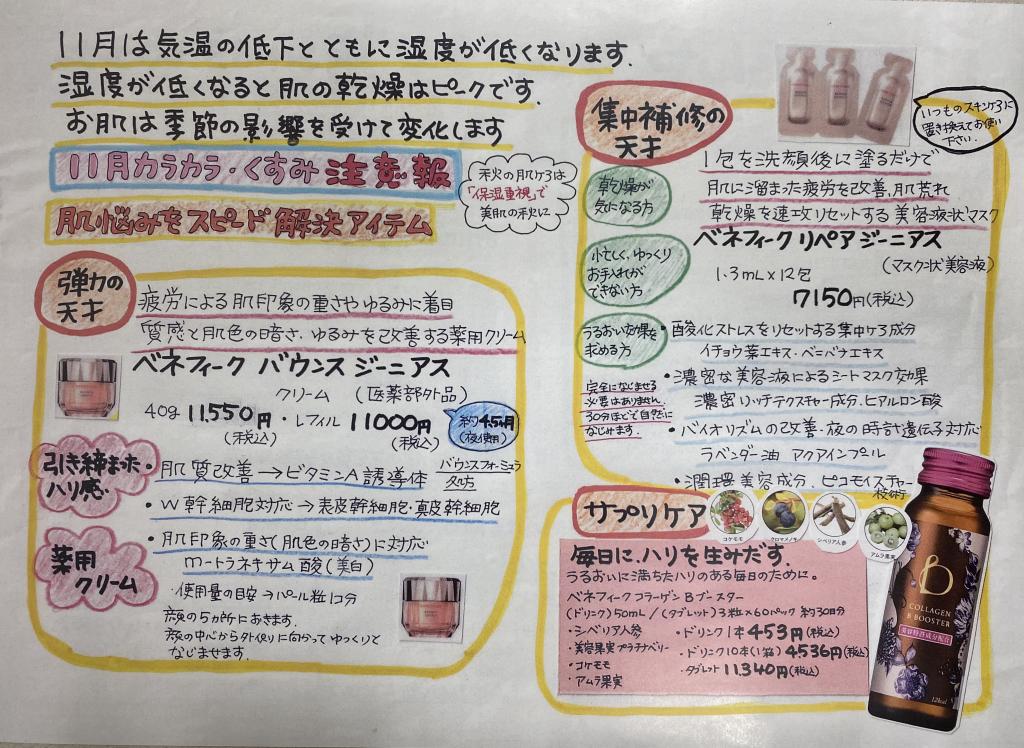 11月は気温の低下とともに湿度が低くなります.
湿度が低くなると肌の乾燥はピークです.
お肌は季節の影響を受けて変化します
11月カラカラ・くすみ 注意報
肌悩みをスピード解決アイテム
秋火の肌ケアは
「保湿重視」で
美肌の秋火に
弾力の
天才
疲労による肌印象の重さやゆるみに着目
質感と肌色の暗さ、ゆるみを改善する薬用クリーム
ベネフィーク バウンス ジーニアス
クリーム (医薬部外品)
40g 11,550円・レフィル 11000円
(税込) (税込)
約4.5ヶ月
(夜使用)
引き締まった
ハリ感
・肌質改善→ビタミンA誘導体
バウンスフォーミュラ
処方
・W幹細胞対応→表皮幹細胞・真皮幹細胞
・肌印象の重さ(肌色の暗さ)に対応
m-トラネキサム酸(美白)
薬用
クリーム
・使用量の目安→パール粒1コ分
顔の5か所におきます.
顔の中心から外回りに向かってゆっくりと
なじませます.
集中補修の
天才
いつものスキンケアに
置き換えてお使い
下さい.
1包を洗顔後に塗るだけで
肌に溜まった疲労を改善、肌荒れ
乾燥を速攻リセットする美容液状マスク
乾燥が
気になる方
ベネフィーク リペアジーニアス
(マスク状美容液)
1.3mL×12包
7150円(税込)
忙しく、ゆっくり
お手入れが
できない方
うるおい効果を
求める方
・酸化ストレスをリセットする集中ケア成分
イチョウ葉エキス・ベニバナエキス
・濃密な美容液によるシートマスク効果
濃密リッチテクスチャー成分、ヒアルロン酸
完全になじませる
必要はありません.
30分ほどで自然に
なじみます.
・バイオリズムの改善・夜の時計遺伝子対応
ラベンダー油 アクアインプール
・潤環美容成分、ピコモイスチャー
技術
サプリケア
コケモモ
クロマメノキ
シベリア人参
アムラ果実
毎日に、ハリを生みだす.
うるおいに満ちたハリのある毎日のために。
ベネフィーク コラーゲン Bブースター
(ドリンク)50mL/(タブレット)3粒×60パック 約30日分
・シベリア人参 ・ドリンク1本 453円(税込)
・美容果実プラチナベリー ・ドリンク10本(1箱) 4536円(税込)
・コケモモ ・タブレット 11.340円(税込)
・アムラ果実
B
COLLAGEN
B BOOSTER
12kcal